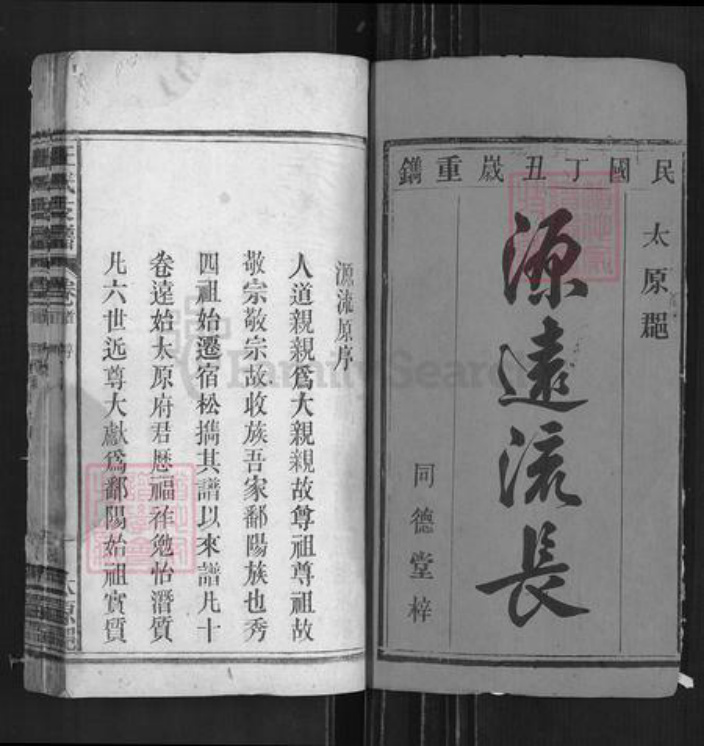 民國丁丑歲重鐫
太原郡
源遠流長
同德堂梓
源流原序
人道親親爲大親親故尊祖尊祖故
敬宗敬宗故收族吾家鄱陽族也秀
四祖始遷宿松攜其譜以來譜凡十
卷遠始太原府君歷福祚勉怡潛質
凡六世近尊大獻爲鄱陽始祖實質
王氏支譜
卷首
太原郡
FamilySearch